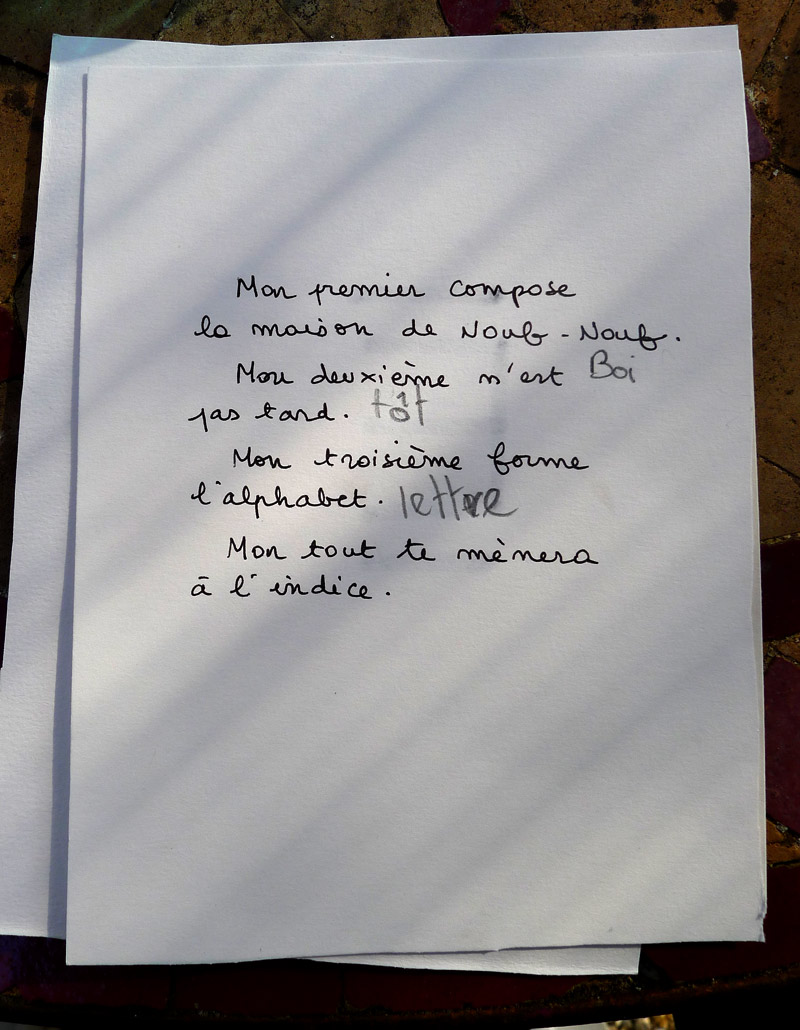 Mon premier compose
la maison de Nouf-Nouf.
Mon deuxième n'est Boi
pas tard. tôt
Mon troisième forme
l'alphabet. lettre
Mon tout te mènera
à l'indice.